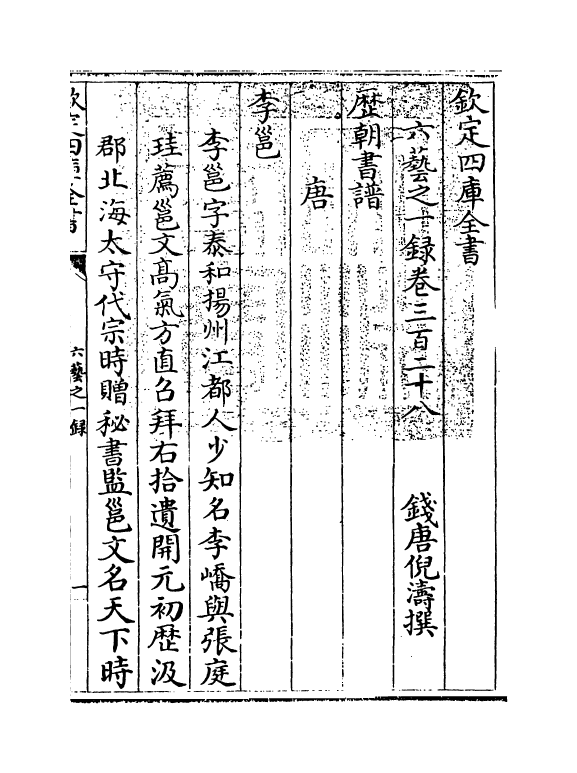 欽定四庫全書
六藝之一録卷三百二十八
錢唐倪濤撰
歴朝書譜
唐
李邕
李邕字泰和揚州江都人少知名李嶠與張庭
珪薦邕文髙氣方直召拜右拾遺開元初歴汲
郡北海太守代宗時贈秘書監邕文名天下時
欽定四庫全書
六藝之一録
一